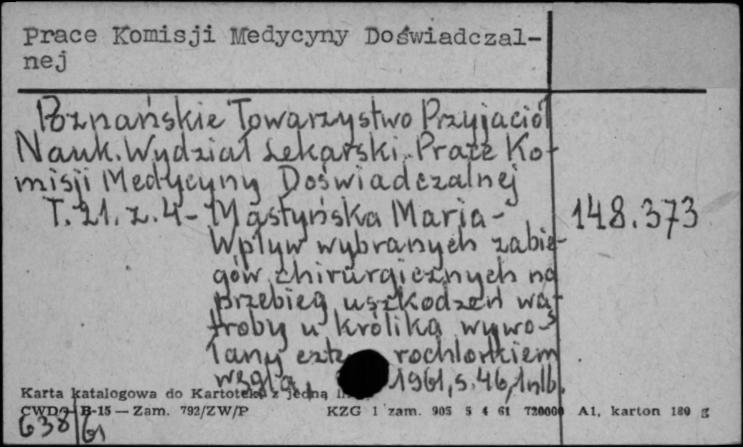 Prace Komisji Medycyny Doświadczal-
nej
Poznańskie Towarzystwo Przyjaciół
Nauk. Wydział Lekarski. Prace Ko-
misji Medycyny Doświadczalnej
T. 21. z. 4 - Mastyńska Maria -
148.373
Wpływ wybranych zabie-
gów chirurgicznych na
przebieg uszkodzeń wą-
troby u królika wywo-
łany rochlorkiem
węgla, 1961, s. 46, 1 nlb.
Karta katalogowa do Kartoteki z jedną
CWD B-15 — Zam. 792/ZW/P KZG 1 zam. 905 5 4 61 720000 A1, karton 180 g
638/61